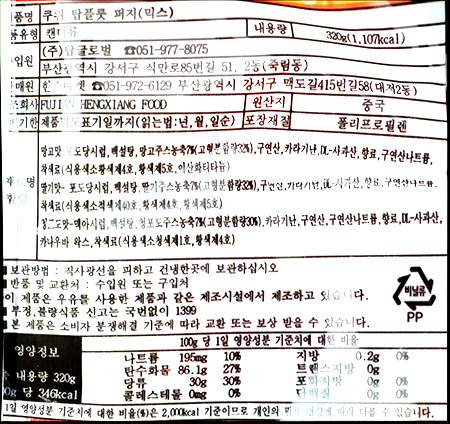 제품명 쿠킹 탑플룻 퍼지(믹스)
식품유형 캔디류 내용량 320g(1,107kcal)
수입원 (주)탑글로벌 ☎051-977-8075
부산광역시 강서구 식만로85번길 51, 2동(죽림동)
판매원 ☎051-972-6129 부산광역시 강서구 맥도길415번길58(대저2동)
제조회사 FUJIAN HENGXIANG FOOD 원산지 중국
유통기한 제품별도표기일까지(읽는법:년,월,일순) 포장재질 폴리프로필렌
망고맛- 포도당시럽, 백설탕, 망고주스농축7%(고형분함량32%), 구연산, 카라기난, DL-사과산, 향료, 구연산나트륨,
착색료(식용색소황색제4호, 황색제5호, 이산화티타늄)
딸기맛- 포도당시럽, 백설탕, 딸기주스농축7%(고형분함량32%), 구연산, 카라기난, DL-사과산, 향료, 구연산나트륨,
착색료(식용색소적색제40호, 황색제4호, 황색제5호)
청포도맛-맥아시럽, 백설탕, 청포도주스농축7%(고형분함량30%), 카라기난, 구연산, 구연산나트륨, 향료, DL-사과산,
카나우바 왁스, 착색료(식용색소청색제1호, 황색제4호)
■ 보관방법 : 직사광선을 피하고 건냉한곳에 보관하십시오
■ 반품 및 교환처 : 수입원 또는 구입처
이 제품은 우유를 사용한 제품과 같은 제조시설에서 제조하고 있습니다.
■ 부정,불량식품 신고는 국번없이 1399
■ 본 제품은 소비자 분쟁해결 기준에 따라 교환 또는 보상 받을 수 있습니다.
비닐류
PP
영양정보
총 내용량 320g
100g 당 346kcal
100g 당 1일 영양성분 기준치에 대한 비율
나트륨 195mg 10% 지방 0.2g 0%
탄수화물 86.1g 27% 트랜스지방 0g
당류 30g 30% 포화지방 0g 0%
콜레스테롤 0mg 0% 단백질 0g 0%
1일 영양성분 기준치에 대한 비율(%)은 2,000kcal 기준이므로 개인의 필요 열량에 따라 다를 수 있습니다.